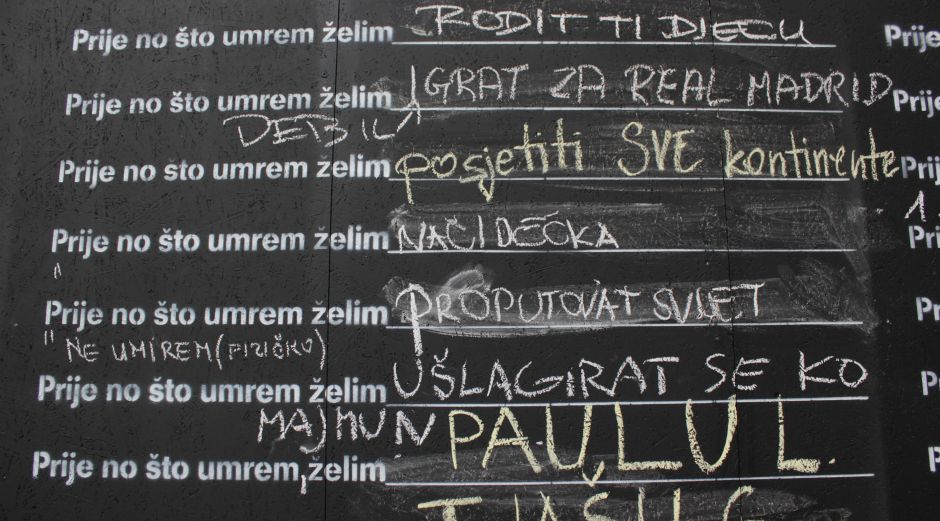 Prije no što umrem želim RODIT TI DJECU
Prije no što umrem želim IGRAT ZA REAL MADRID
DEBIL
Prije no što umrem želim posjetiti SVE kontinente
Prije no što umrem želim NAĆI DEČKA
Prije no što umrem želim PROPUTOVAT SVIJET
" NE UMIREM (FIZIČKO)
Prije no što umrem želim UŠLAGIRAT SE KO
MAJMUN PAULU L.
Prije no što umrem, želim
Prije
Prije
Prij
1.
Pri